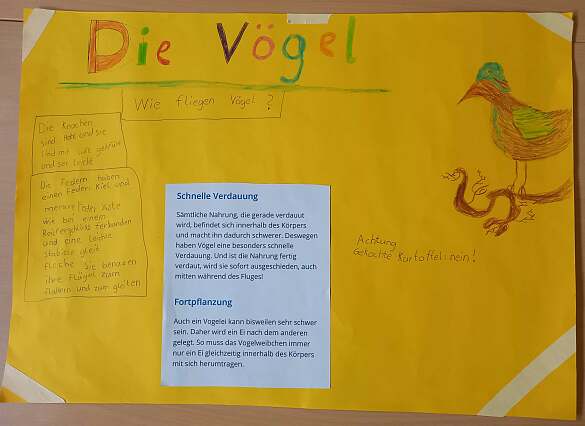 Die Vögel
Wie fliegen Vögel?
Die Knochen
sind Hohl und sie
sind mit Luft gefühlt
und ser Leicht
Die Federn haben
einen Feder Kiel und
Äste
wie bei einem
verbunden
und eine Leichte
stabiele gleit
fläche Sie benutzen
ihre Flügel zum
flattern und zum gleiten
Schnelle Verdauung
Sämtliche Nahrung, die gerade verdauut
wird, befindet sich innerhalb des Körpers
und macht ihn dadurch schwerer. Deswegen
haben Vögel eine besonders schnelle
Verdauung. Und ist die Nahrung fertig
verdaut, wird sie sofort ausgeschieden, auch
mitten während des Fluges!
Fortpflanzung
Auch ein Vogelei kann bisweilen sehr schwer
sein. Daher wird ein Ei nach dem anderen
gelegt. So muss das Vogelweibchen immer
nur ein Ei gleichzeitig innerhalb des Körpers
mit sich herumtragen.
Achtung
gekochte Kartoffel: nein!